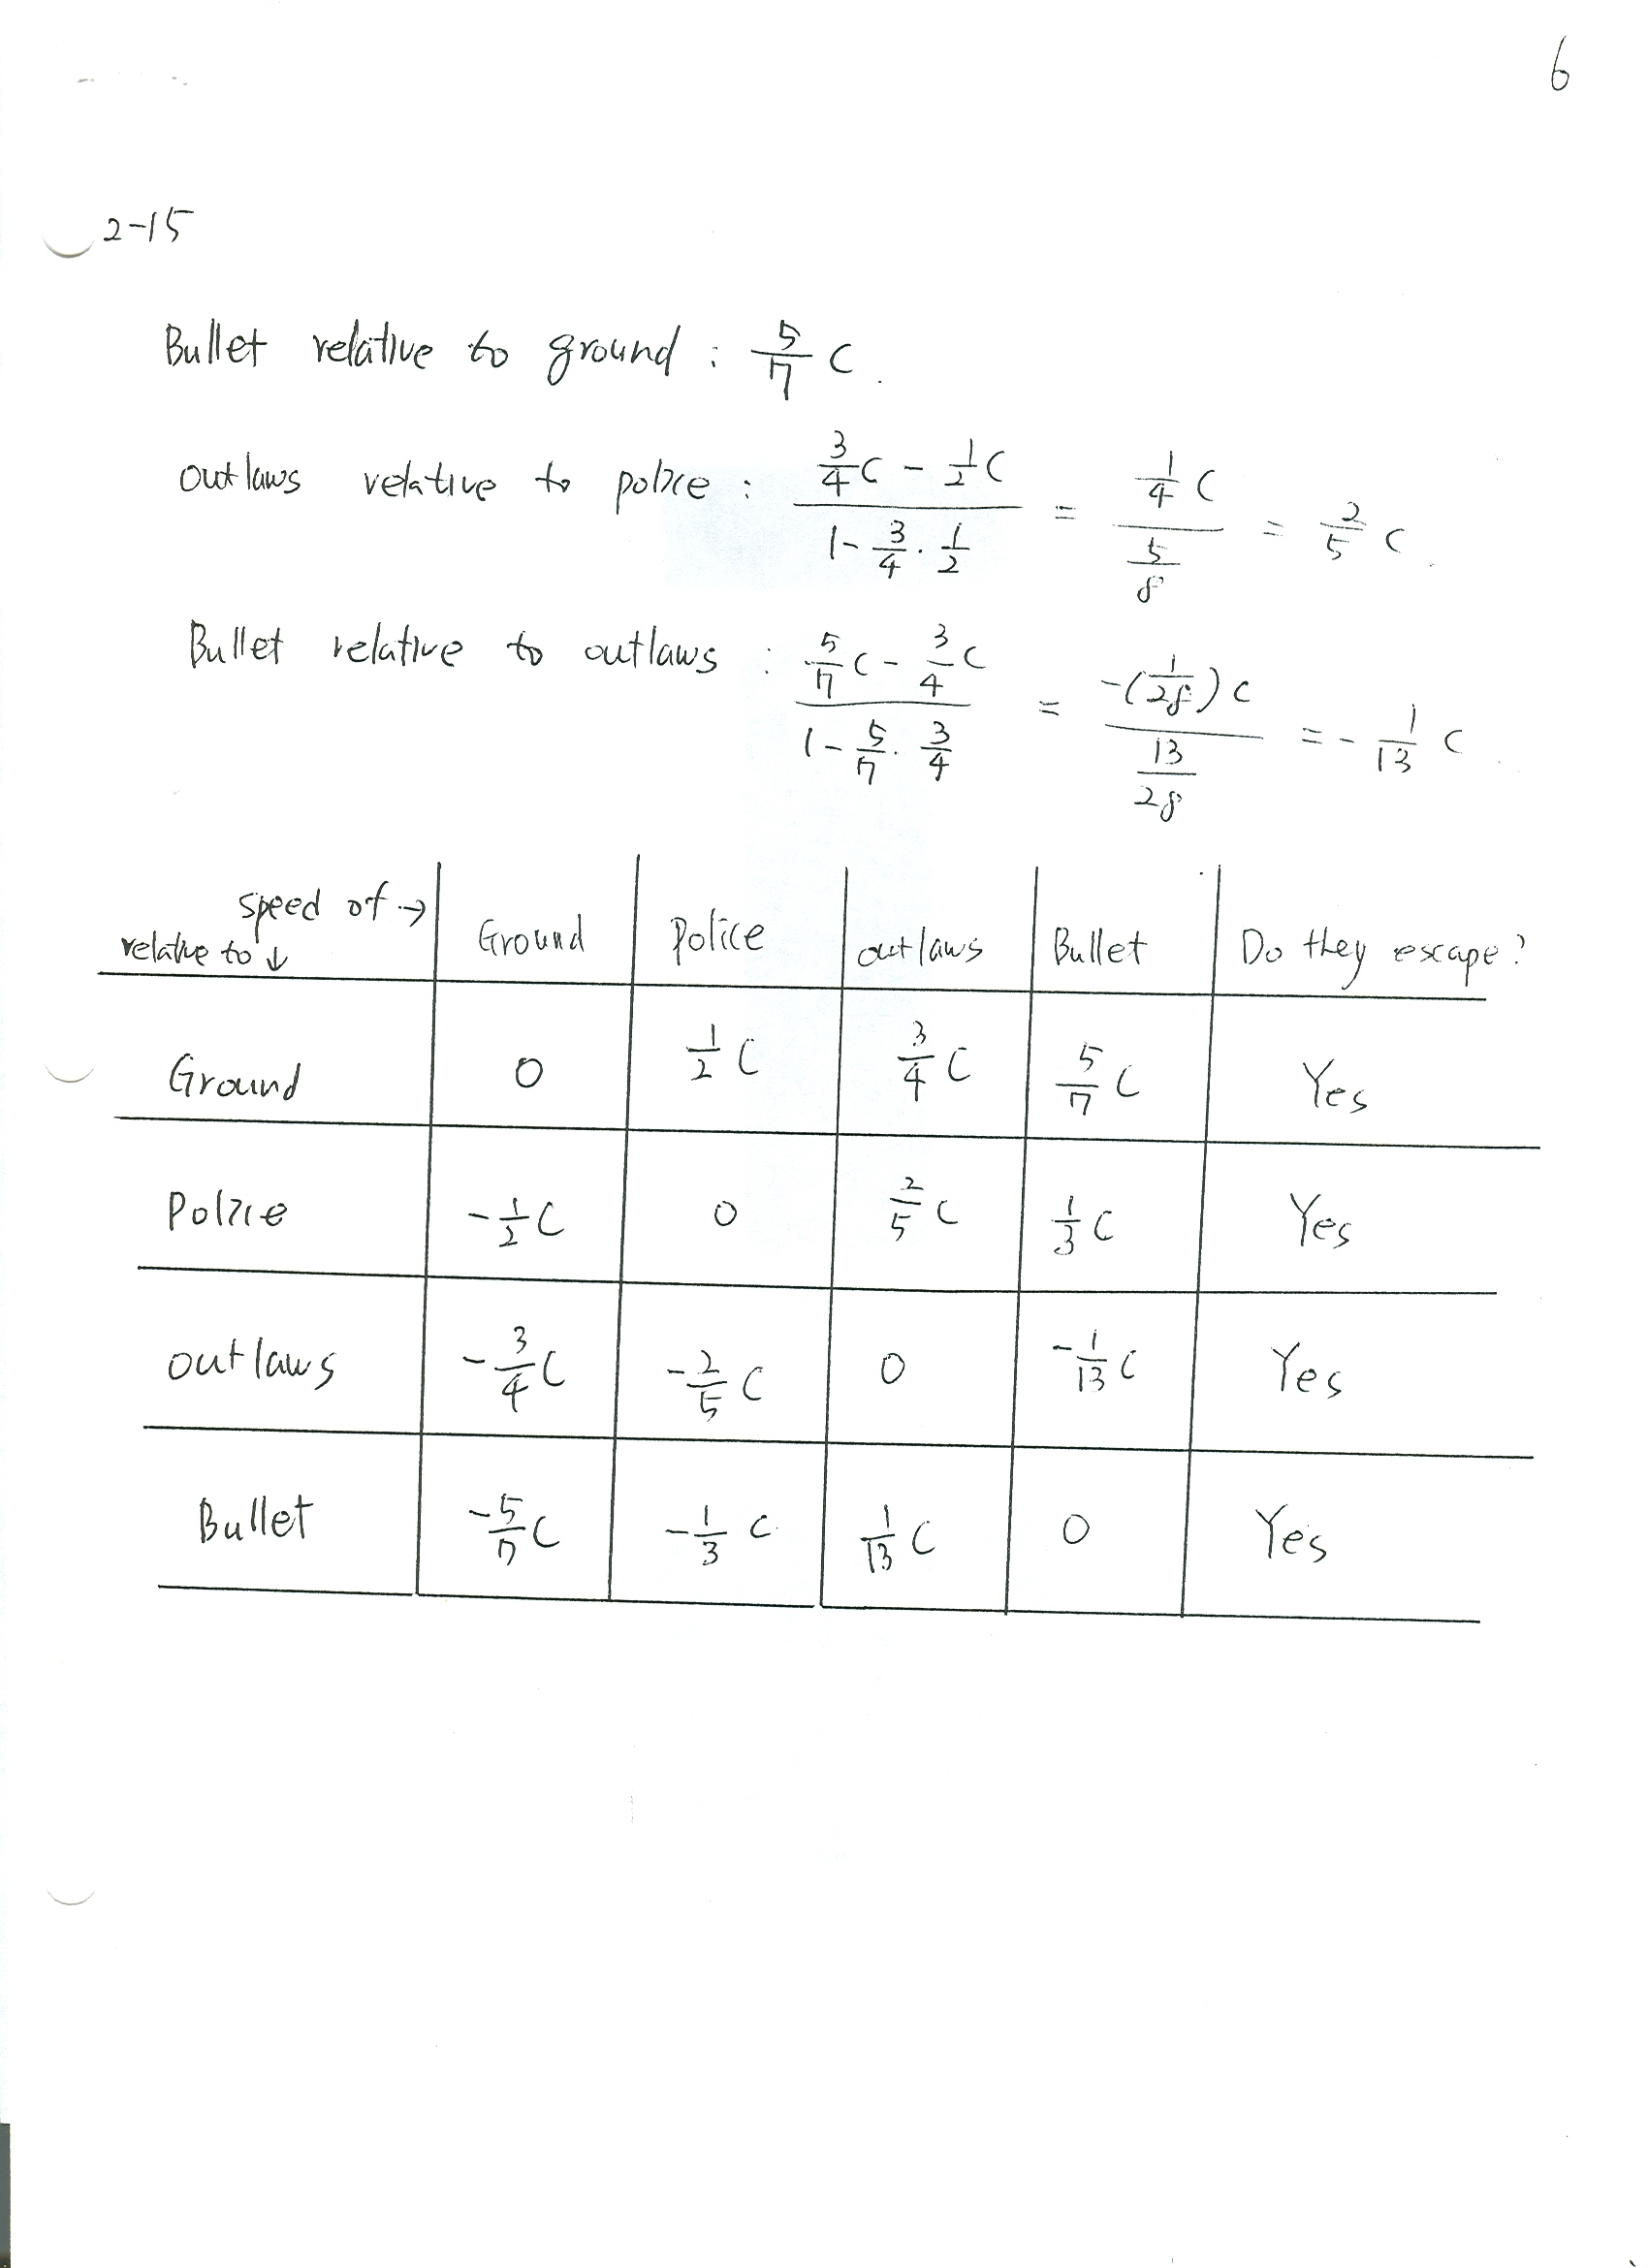 6
2-15
Bullet relative to ground : 5/7 C.
outlaws relative to police : (3/4 C - 1/2 C) / (1 - 3/4 · 1/2) = (1/4 C) / (5/8) = 2/5 C.
Bullet relative to outlaws : (5/7 C - 3/4 C) / (1 - 5/7 · 3/4) = (-(1/28) C) / (13/28) = - 1/13 C
speed of →
relative to ↓ Ground Police outlaws Bullet Do they escape?
Ground 0 1/2 C 3/4 C 5/7 C Yes
Police -1/2 C 0 2/5 C 1/3 C Yes
outlaws -3/4 C -2/5 C 0 -1/13 C Yes
Bullet -5/7 C -1/3 C 1/13 C 0 Yes